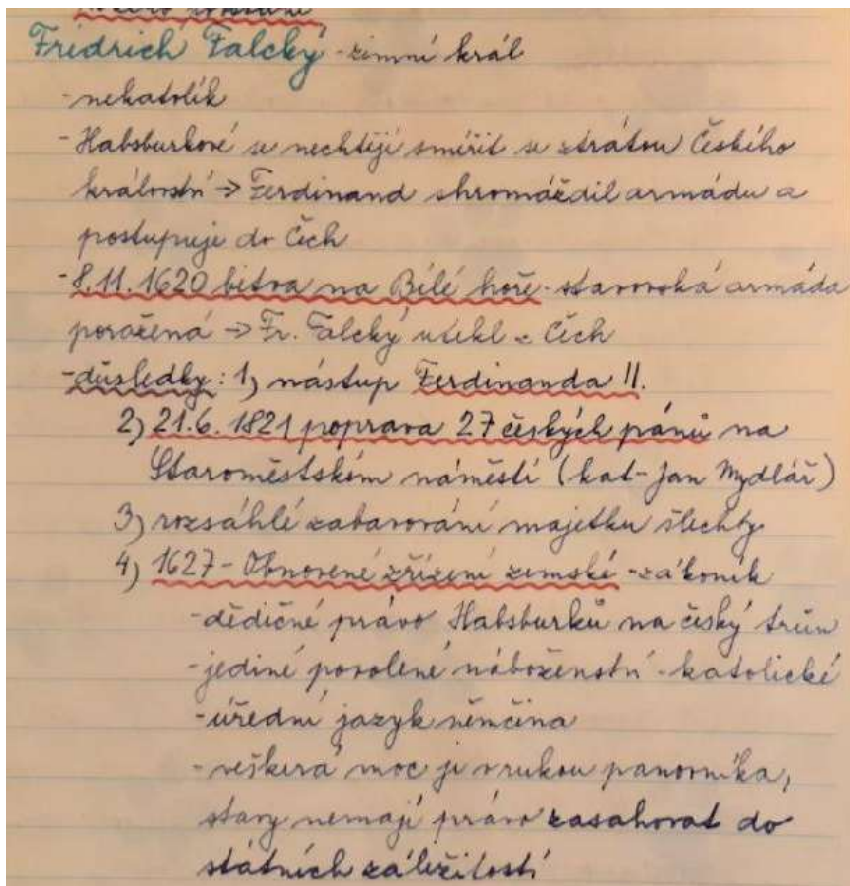 Fridrich Falcký - zimní král
- nekatolík
- Habsburkové se nechtějí smířit se ztrátou Českého
království → Ferdinand shromáždil armádu a
postupuje do Čech
- 8.11.1620 bitva na Bílé hoře - stavovská armáda
poražená → Fr. Falcký utekl z Čech
- důsledky: 1) nástup Ferdinanda II.
2) 21.6.1821 poprava 27 českých pánů na
Staroměstském náměstí (kat - Jan Mydlář)
3) rozsáhlé zabavování majetku šlechty
4) 1627 - Obnovené zřízení zemské - zákoník
- dědičné právo Habsburků na český trůn
- jediné povolené náboženství - katolické
- úřední jazyk němčina
- veškerá moc je v rukou panovníka,
stavy nemají právo zasahovat do
státních záležitostí